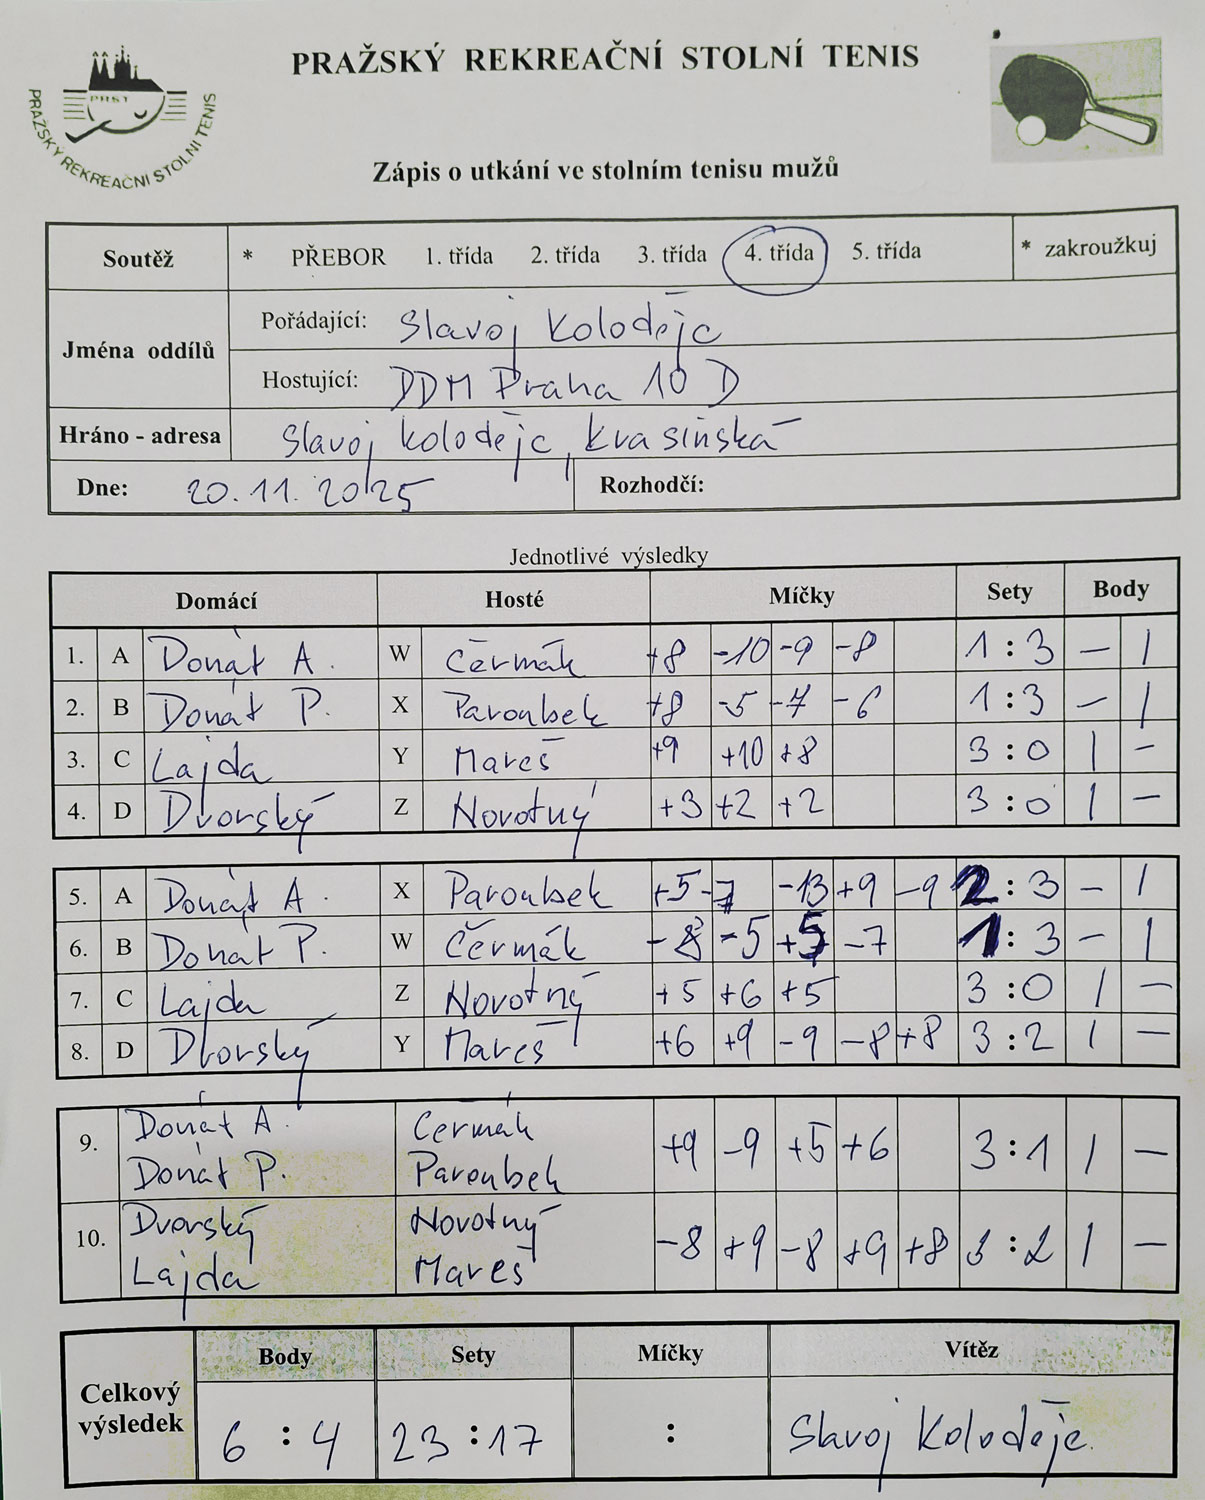 PRAŽSKÝ REKREAČNÍ STOLNÍ TENIS
PRST
PRAŽSKÝ REKREAČNÍ STOLNÍ TENIS
Zápis o utkání ve stolním tenisu mužů
Soutěž * PŘEBOR 1. třída 2. třída 3. třída 4. třída 5. třída * zakroužkuj
Jména oddílů
Pořádající: Slavoj Koloděje
Hostující: DDM Praha 10 D
Hráno - adresa Slavoj Koloděje, Krasińská
Dne: 20.11.2025 Rozhodčí:
Jednotlivé výsledky
Domácí Hosté Míčky Sety Body
1. A Donát A. W Čermák +8 -10 -9 -8 1 : 3 – 1
2. B Donát P. X Paroubek +8 -5 -7 -6 1 : 3 – 1
3. C Lajda Y Mareš +9 +10 +8 3 : 0 1 –
4. D Dvorský Z Novotný +3 +2 +2 3 : 0 1 –
5. A Donát A. X Paroubek +5 -7 -13 +9 -9 2 : 3 – 1
6. B Donát P. W Čermák -8 -5 +5 -7 1 : 3 – 1
7. C Lajda Z Novotný +5 +6 +5 3 : 0 1 –
8. D Dvorský Y Mareš +6 +9 -9 -8 +8 3 : 2 1 –
Donát A. Čermák
9. +9 -9 +5 +6 3 : 1 1 –
Donát P. Paroubek
Dvorský Novotný
10. -8 +9 -8 +9 +8 3 : 2 1 –
Lajda Mareš
Celkový výsledek
Body Sety Míčky Vítěz
6 : 4 23 : 17 : Slavoj Koloděje